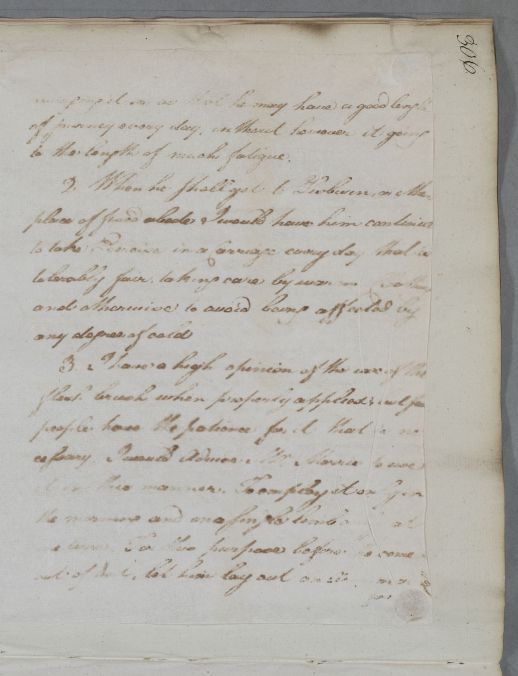 306
so that he may have a good length
of journey every day, without however it going
to the length of much fatigue.
2. When he shall get to or other
place of fixed abode I would have him continue
to take Exercise in a Carriage every day that is
tolerably fair, taking care by warm
and otherwise to avoid being affected by
any degree of cold
3. I have a high opinion of the use of the
flesh brush when properly applied; but few
people have the patience for it that is ne
cessary. I would advise Mr. to use
it in this manner. To employ it only in
the morning and on a single limb at
one time. For this purpose before he come
out of bed, let him lay out one